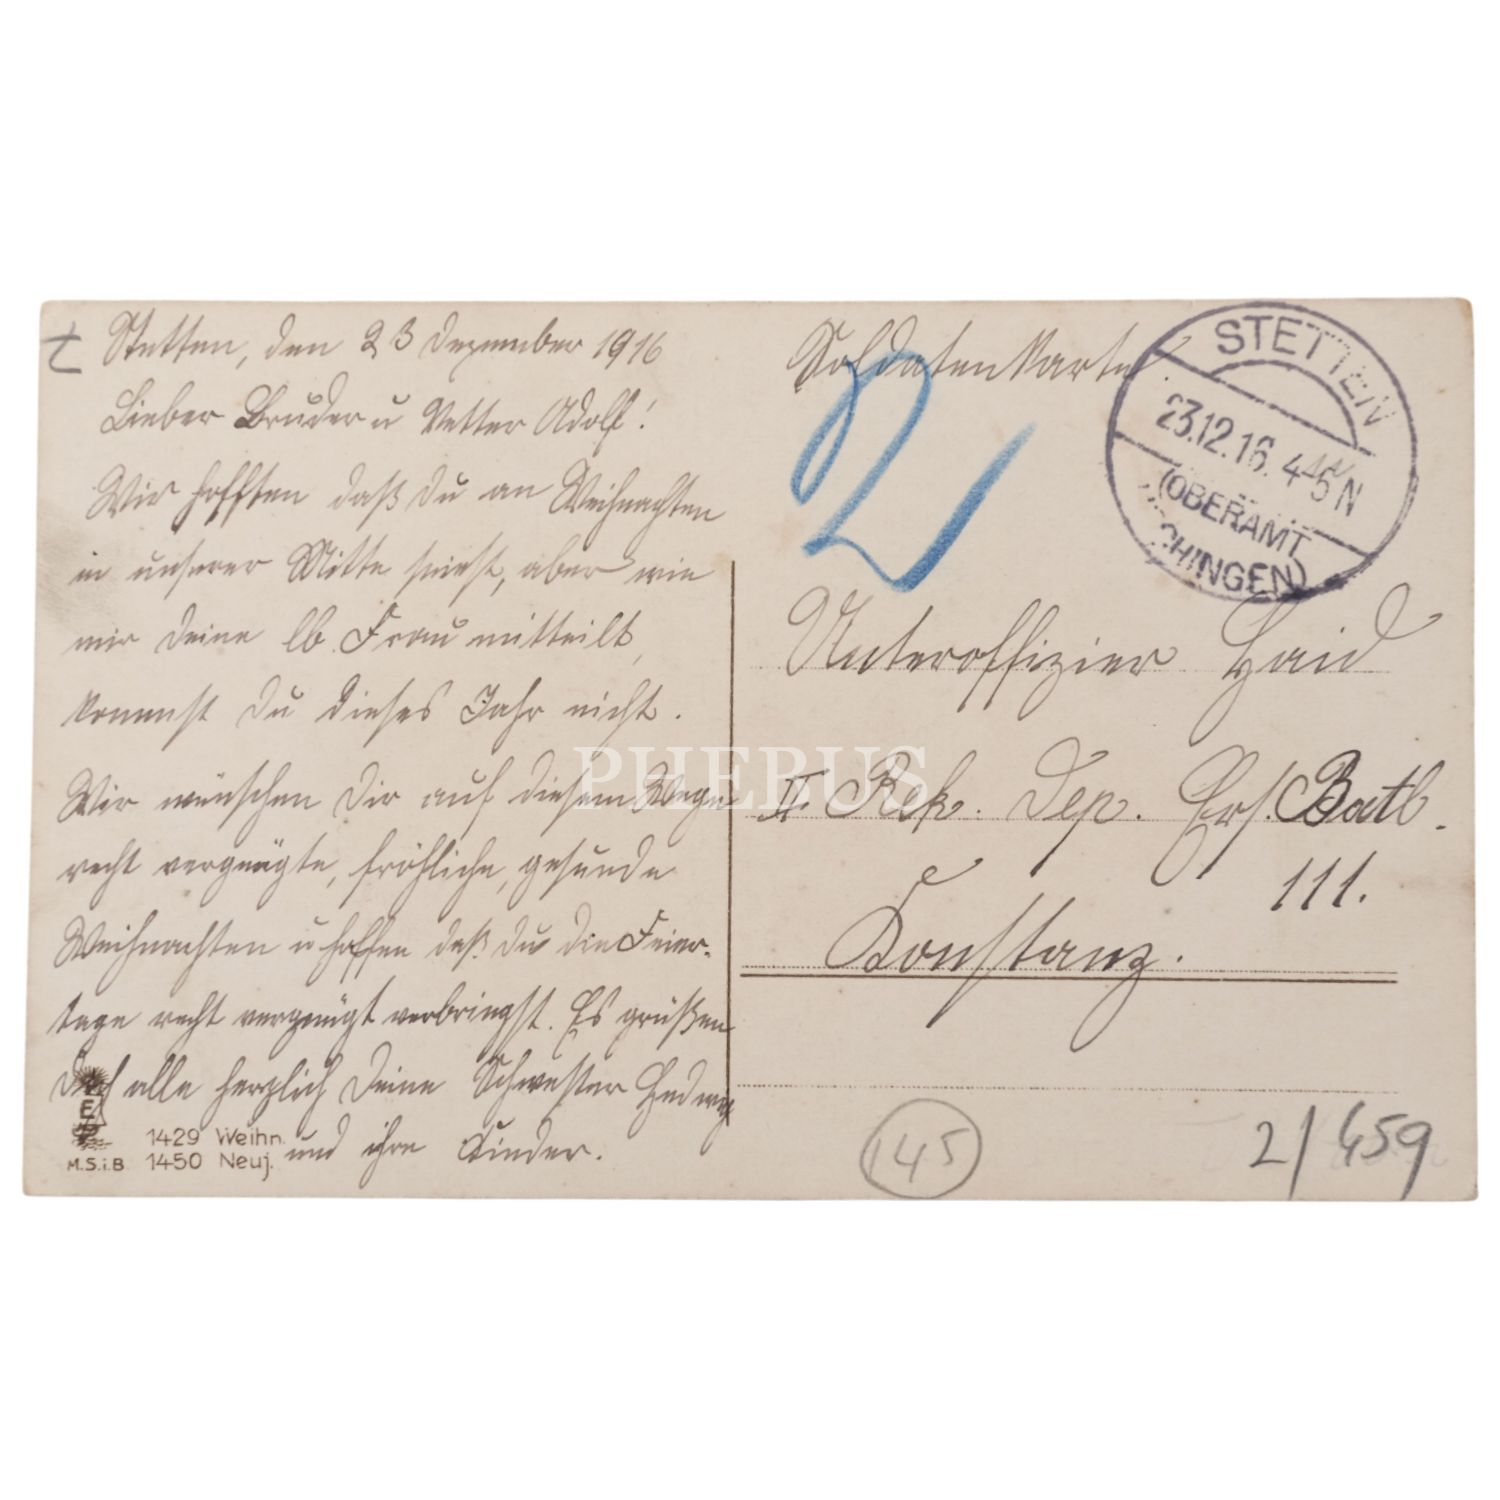 Stetten, den 23 Dezember 1916
Lieber Bruder u Vetter Adolf!
Wir hofften daß du an Weihnachten
in unserer Mitte seiest, aber wie
mir deine lb. Frau mitteilt,
kommst Du dieses Jahr nicht.
Wir wünschen Dir auf diesem Wege
recht vergnügte, fröhliche, gesunde
Weihnachten u hoffen daß du die Feier-
tage recht vergnügt verbringst. Es grüßen
Dich alle herzlich Deine Schwester Hedwig
und ihre Kinder.
1429 Weihn.
M.S.i.B. 1450 Neuj.
Soldatenkarte.
STETTEN
23.12.16. 4-5 N
(OBERAMT
CHINGEN)
Unteroffizier Haid
II Rek. Dep. Ers. Batl.
111.
Konstanz.
145
2/459
PHEBUS